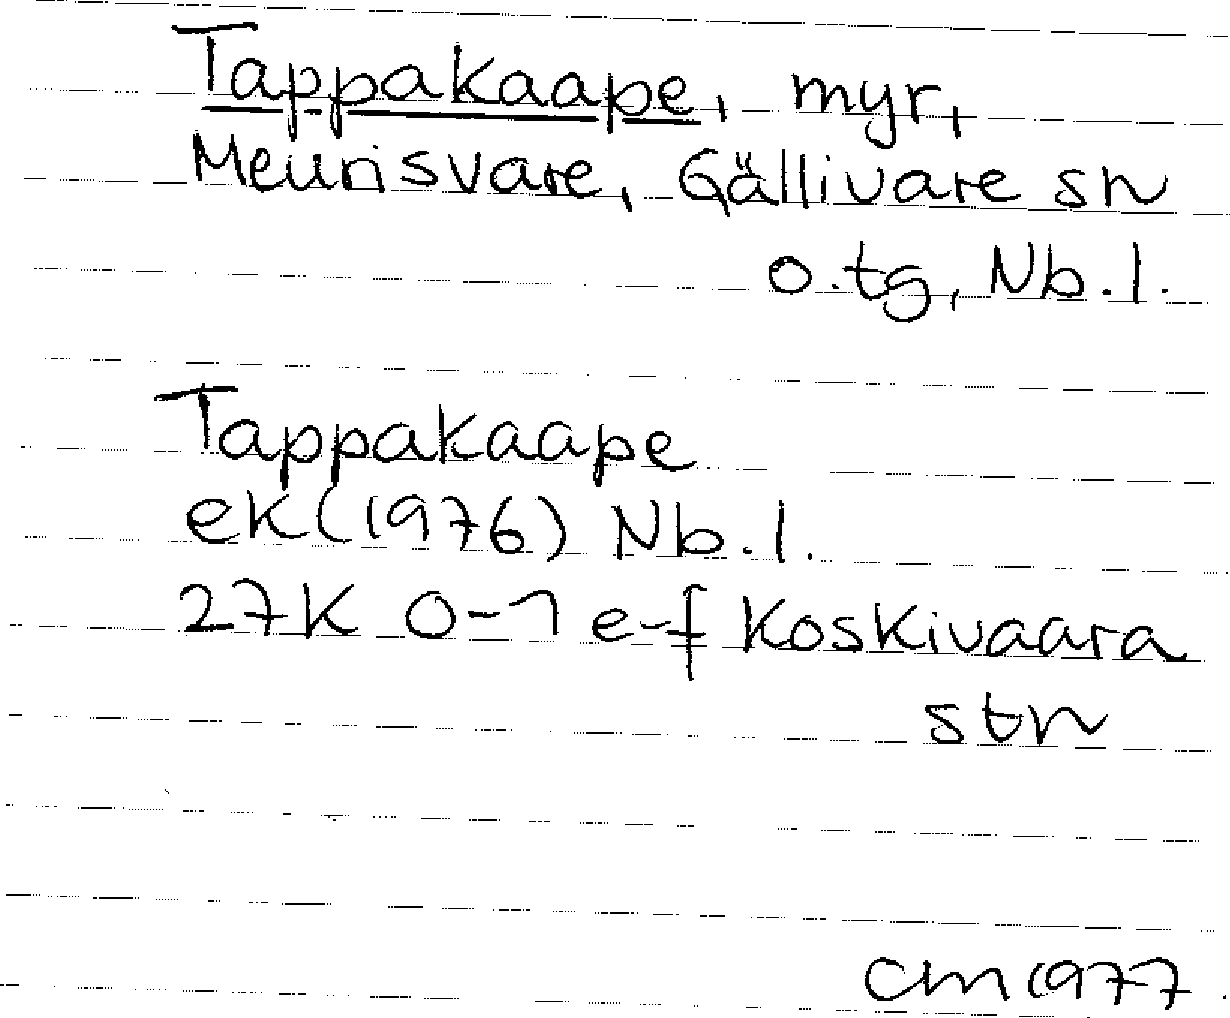 Tappakaape, myr,
Meurisvare, Gällivare sn
o.tg, Nb.l.
Tappakaape
ek (1976) Nb.l.
27K 0-1 e-f Koskivaara
stn
CM 1977.